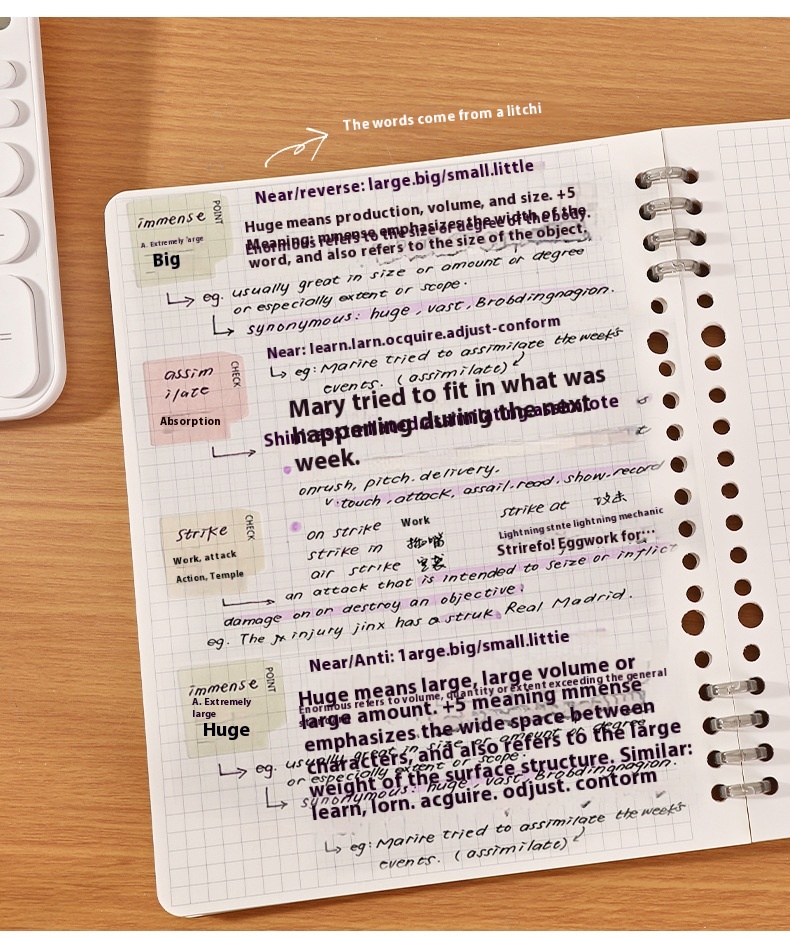 The words come from a litchi
Near/reverse: large.big/small.little
immense
POINT
A. Extremely large
Big
Huge means production, volume, and size. +5
Meaning: mmense emphasizes the width of the
Enormous refers to the size or degree of the body.
word, and also refers to the size of the object.
eg. usually great in size or amount or degree
or especially extent or scope.
synonymous: huge, vast, Brobdingnagion.
Near: learn.larn.ocquire.adjust-conform
assim
ilate
CHECK
Absorption
eg: Marire tried to assimilate the week's
events. (assimilate)
Mary tried to fit in what was
happening during the next
week.
onrush, pitch. delivery.
v. touch. attack, assail. read. show. record
strike
CHECK
Work, attack
Action, Temple
on strike Work
strike in
air strike
strike at 攻击
Lightning stnte lightning mechanic
Strirefo! Eggwork for...
an attack that is intended to seize or inflict
damage on or destroy an objective.
eg. The injury jinx has a struk Real Madrid.
Near/Anti: 1arge.big/small.littie
immense
POINT
A. Extremely
large
Huge
Huge means large, large volume or
Enormous refers to volume, quantity or extent exceeding the general
large amount. +5 meaning mmense
emphasizes the wide space between
characters, and also refers to the large
weight of the surface structure. Similar:
learn, lorn. acguire. odjust. contorm
eg. usually great in size or amount or degree
or especially extent or scope.
synonymous: huge, vast, Brobdingnagion.
eg: Marire tried to assimilate the week's
events. (assimilate)